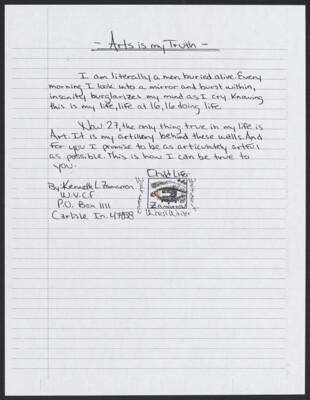 - Arts is my Truth -
I am literally a men buried alive. Every
morning I look into a mirror and burst within,
insanity burglarizes my mind as I cry knowing
this is my life, life at 16, 16 doing life.
Now 27, the only thing true in my life is
Art. It is my artillery behind these walls. And
for you I promise to be as articulately artful
as possible. This is how I can be true to
you.
Child Lifer
By: Kenneth L. Zamarron
W.V.C.F
P.O. Box 1111
Carlisle In. 47838
Zamarron